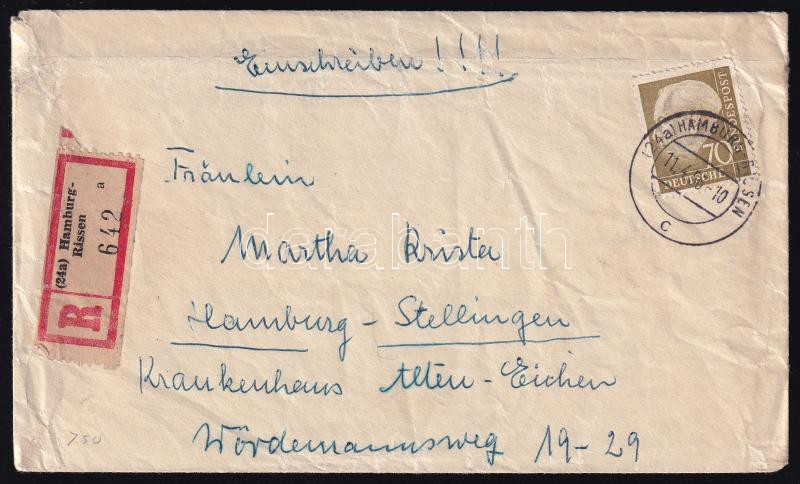 Einschreiben!!!!
Fräulein
Martha Krista
Hamburg - Stellingen
Krankenhaus Alten-Eichen
Wördemannsweg 19-29
(24a) Hamburg-
Rissen
642
a
R
70
DEUTSCHE
BUNDESPOST
(24a) HAMBURG
c
750
darabanth